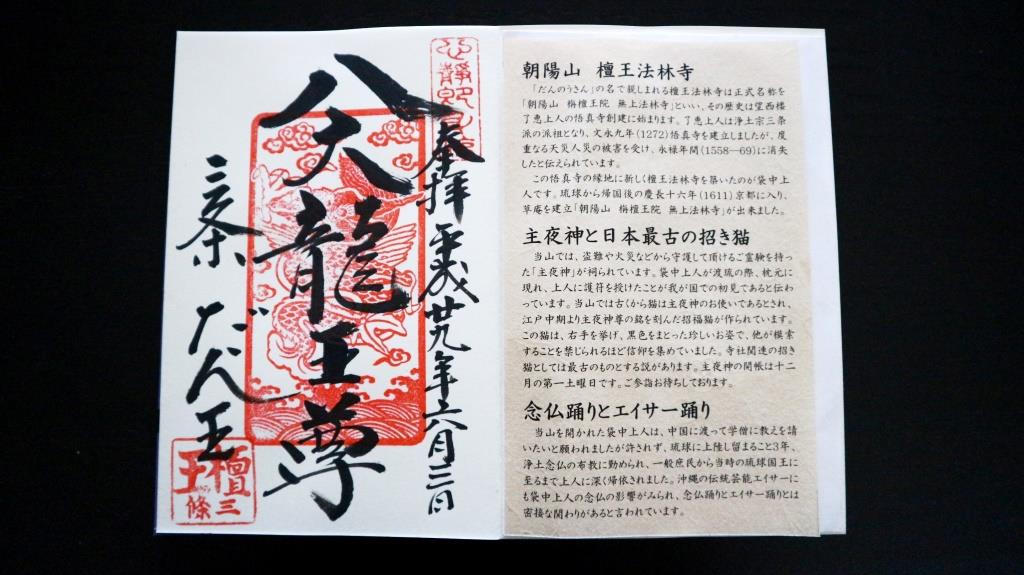 奉拝 平成廿九年六月三日
八大龍王尊
三条 だん王
三條
檀王
朝陽山 檀王法林寺
「だんのうさん」の名で親しまれる檀王法林寺は正式名称を
「朝陽山 栴檀王院 無上法林寺」といい、その歴史は望西楼
了恵上人の悟真寺創建に始まります。了恵上人は浄土宗三条
派の派祖となり、文永九年(1272)悟真寺を建立しましたが、度
重なる天災人災の被害を受け、永禄年間(1558―69)に消失
したと伝えられています。
この悟真寺の縁地に新しく檀王法林寺を築いたのが袋中上
人です。琉球から帰国後の慶長十六年(1611)京都に入り、
草庵を建立「朝陽山 栴檀王院 無上法林寺」が出来ました。
主夜神と日本最古の招き猫
当山では、盗難や火災などから守護して頂けるご霊験を持っ
た「主夜神」が祠られています。袋中上人が渡琉の際、枕元に
現れ、上人に護符を授けたことが我が国での初見であると伝わ
っています。当山では古くから猫は主夜神のお使いであるとされ、
江戸中期より主夜神尊の銘を刻んだ招福猫が作られています。
この猫は、右手を挙げ、黒色をまとった珍しいお姿で、他が模索
することを禁じられるほど信仰を集めていました。寺社関連の招き
猫としては最古のものとする説があります。主夜神の開帳は十二
月の第一土曜日です。ご参詣お待ちしております。
念仏踊りとエイサー踊り
当山を開かれた袋中上人は、中国に渡って学僧に教えを請
いたいと願われましたが許されず、琉球に上陸し留まること3年、
浄土念仏の布教に勤められ、一般庶民から当時の琉球国王に
至るまで上人に深く帰依されました。沖縄の伝統芸能エイサーに
も袋中上人の念仏の影響がみられ、念仏踊りとエイサー踊りとは
密接な関わりがあると言われています。